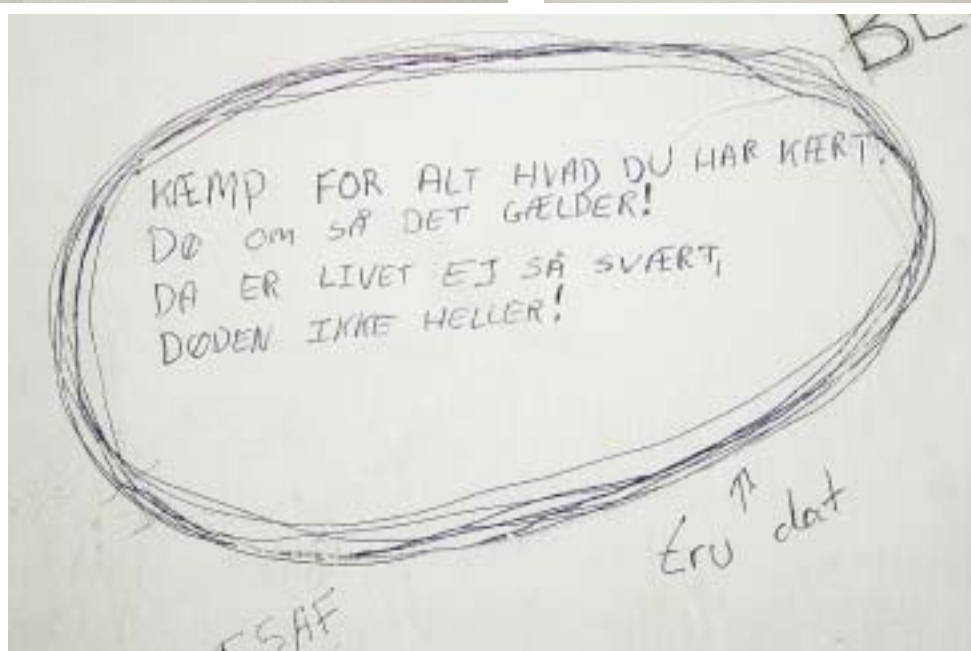 KÆMP FOR ALT HVAD DU HAR KÆRT,
DØ OM SÅ DET GÆLDER!
DA ER LIVET EJ SÅ SVÆRT,
DØDEN IKKE HELLER!
dat